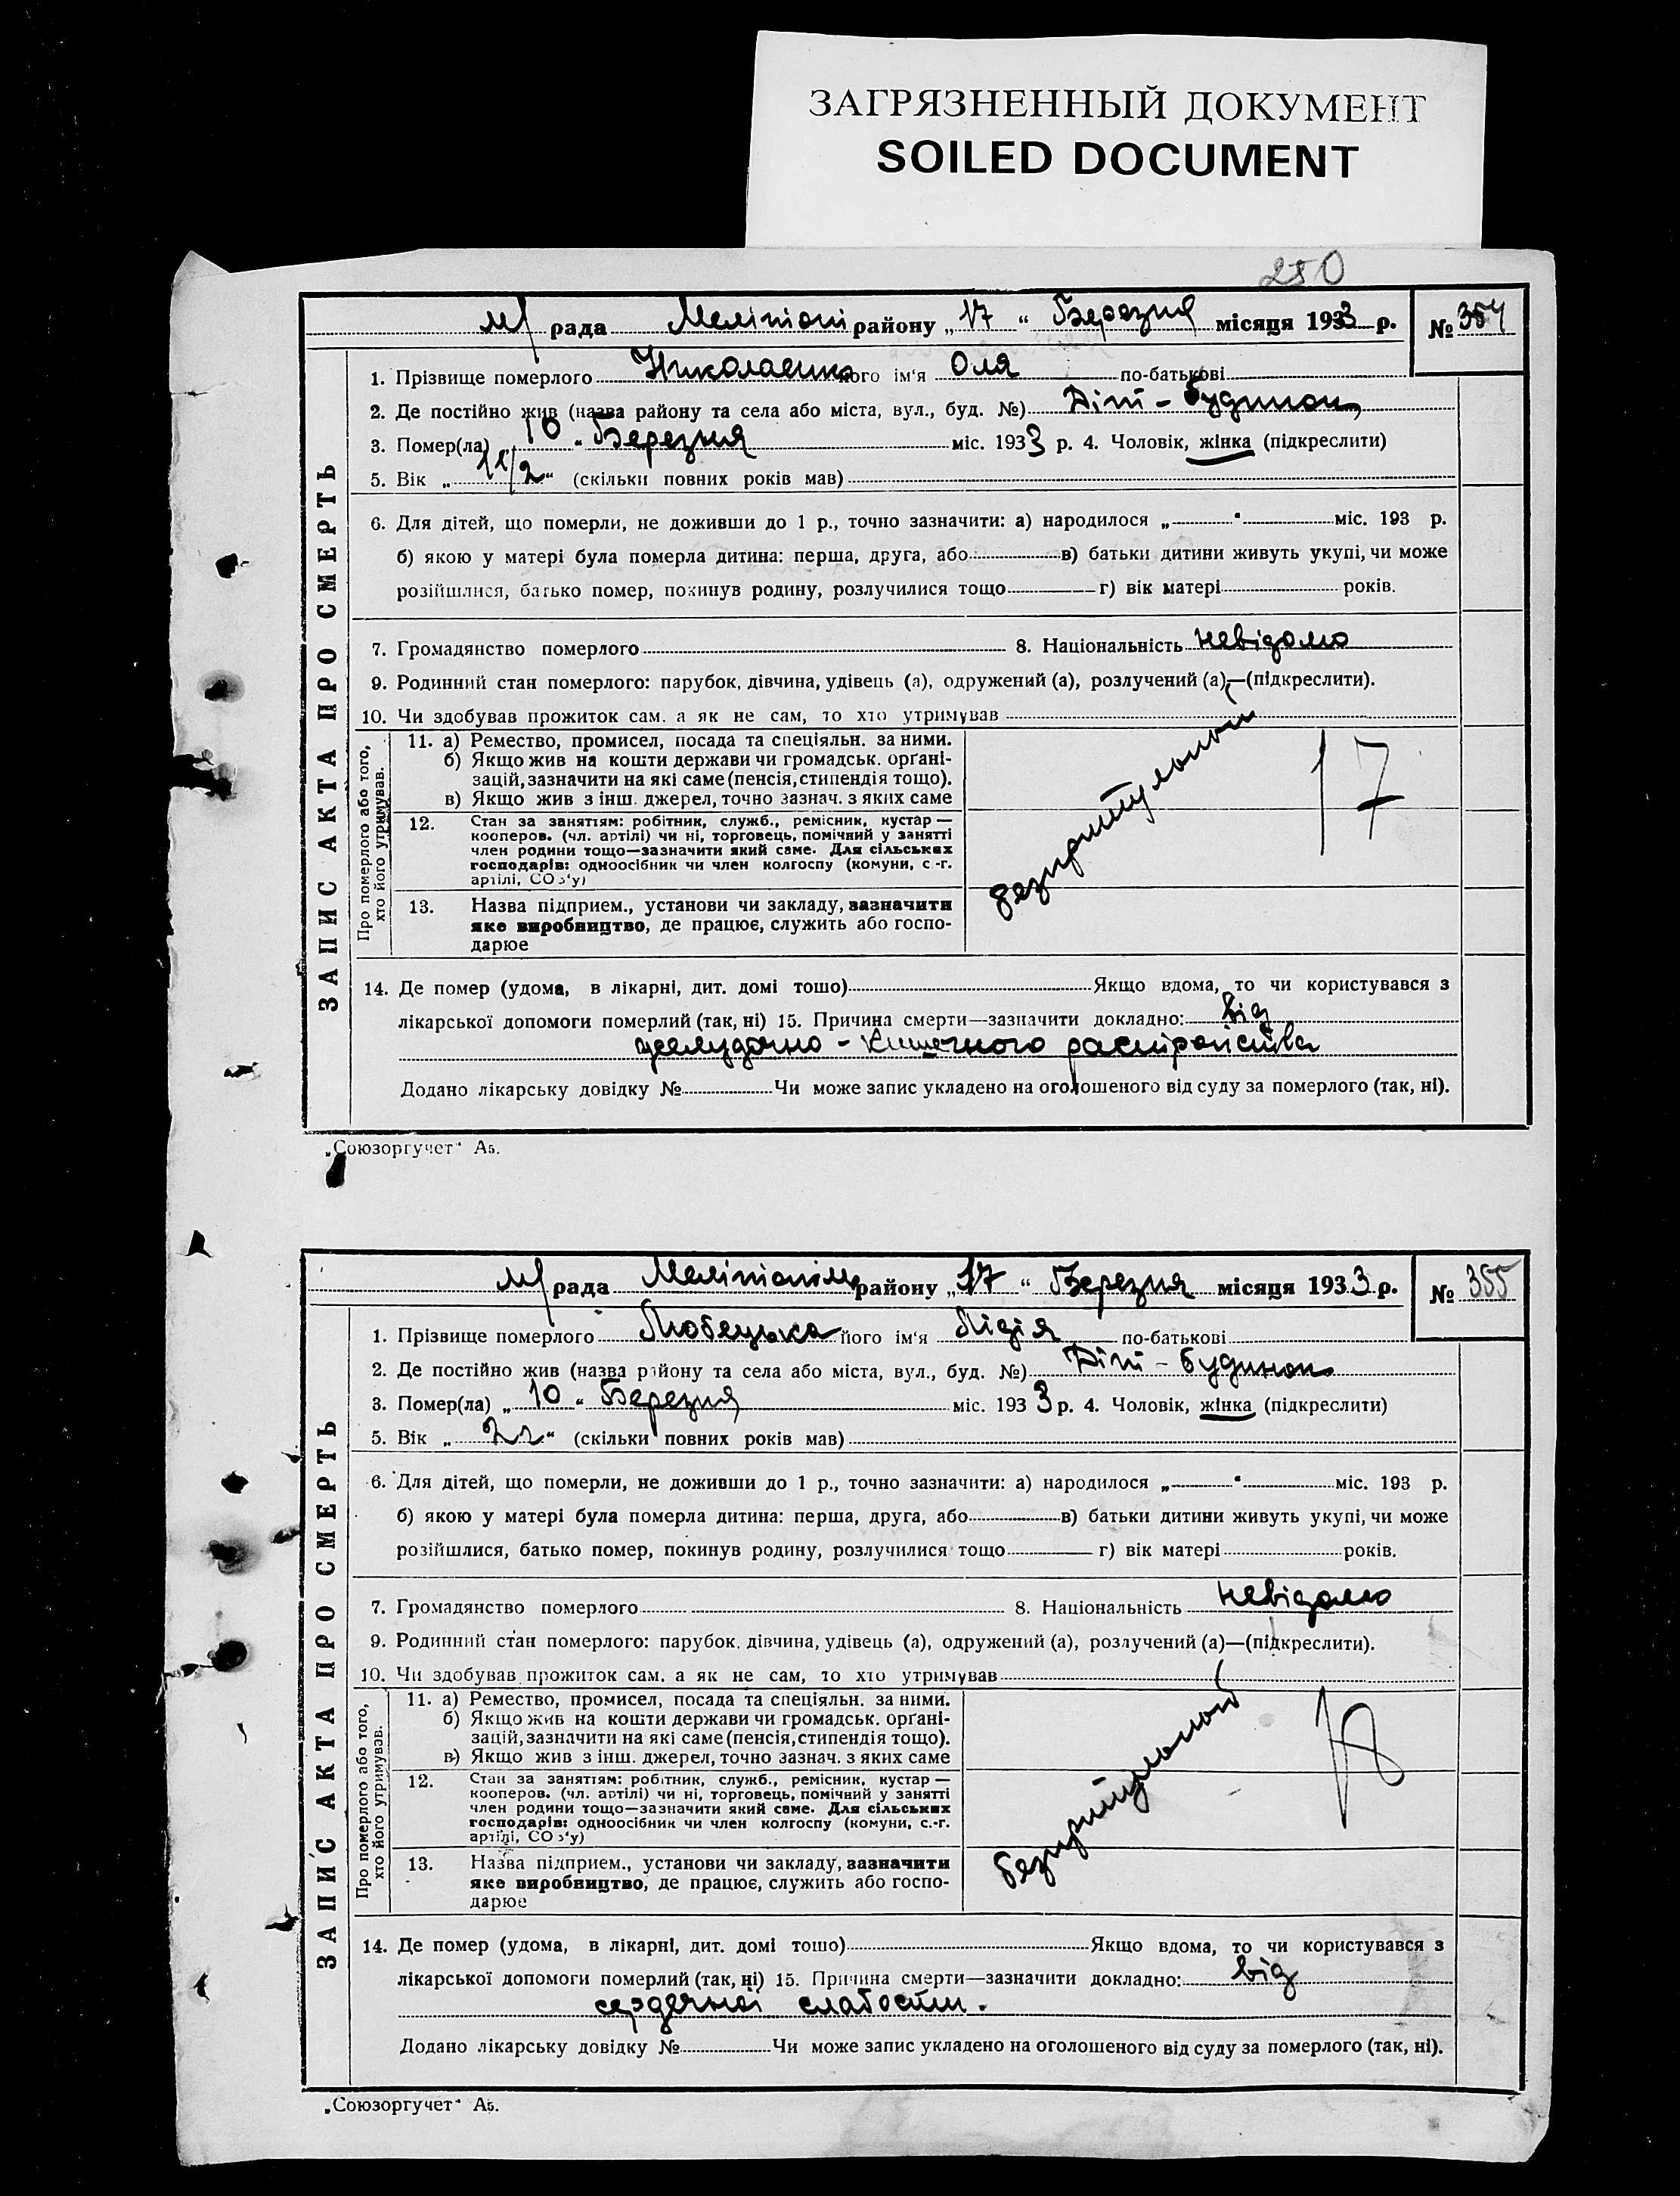 ЗАГРЯЗНЕННЫЙ ДОКУМЕНТ
SOILED DOCUMENT
250
м/ рада Мелітопі району „17“ Березня місяця 1933 р. № 354
1. Прізвище померлого Николаенко його ім'я Оля по-батькові
2. Де постійно жив (назва району та села або міста, вул., буд. №) Діт-будинок
3. Помер(ла) „10“ Березня міс. 1933 р. 4. Чоловік, жінка (підкреслити)
5. Вік „1 1/2“ (скільки повних років мав)
6. Для дітей, що померли, не доживши до 1 р., точно зазначити: а) народилося „ “ міс. 193 р.
б) якою у матері була померла дитина: перша, друга, або в) батьки дитини живуть укупі, чи може
розійшлися, батько помер, покинув родину, розлучилися тощо г) вік матері років.
7. Громадянство померлого 8. Національність невідомо
9. Родинний стан померлого: парубок, дівчина, удівець (а), одружений (а), розлучений (а)—(підкреслити).
10. Чи здобував прожиток сам, а як не сам, то хто утримував
ЗАПИС АКТА ПРО СМЕРТЬ
Про померлого або того, хто його утримував.
11. а) Ремество, промисел, посада та спеціяльн. за ними.
б) Якщо жив на кошти держави чи громадськ. орґані-
зацій, зазначити на які саме (пенсія, стипендія тощо).
в) Якщо жив з інш. джерел, точно зазнач. з яких саме
12. Стан за заняттям: робітник, служб., ремісник, кустар —
кооперов. (чл. артілі) чи ні, торговець, помічний у занятті
член родини тощо—зазначити який саме. Для сільських
господарів: одноосібник чи член колгоспу (комуни, с.-г.
артілі, СОз'у)
13. Назва підприєм., установи чи закладу, зазначити
яке виробництво, де працює, служить або госпо-
дарює
безпритульный
17
14. Де помер (удома, в лікарні, дит. домі тошо) Якщо вдома, то чи користувався з
лікарської допомоги померлий (так, ні) 15. Причина смерти—зазначити докладно: від
желудочно - кишечного расстройства
Додано лікарську довідку № Чи може запис укладено на оголошеного від суду за померлого (так, ні).
„Союзоргучет“ А5.
м/ рада Мелітопілм району „17“ Березня місяця 1933 р. № 355
1. Прізвище померлого Любецька його ім'я Лідія по-батькові
2. Де постійно жив (назва району та села або міста, вул., буд. №) Діт-будинок
3. Помер(ла) „10“ Березня міс. 1933 р. 4. Чоловік, жінка (підкреслити)
5. Вік „2 г“ (скільки повних років мав)
6. Для дітей, що померли, не доживши до 1 р., точно зазначити: а) народилося „ “ міс. 193 р.
б) якою у матері була померла дитина: перша, друга, або в) батьки дитини живуть укупі, чи може
розійшлися, батько помер, покинув родину, розлучилися тощо г) вік матері років.
7. Громадянство померлого 8. Національність невідомо
9. Родинний стан померлого: парубок, дівчина, удівець (а), одружений (а), розлучений (а)—(підкреслити).
10. Чи здобував прожиток сам, а як не сам, то хто утримував
ЗАПИС АКТА ПРО СМЕРТЬ
Про померлого або того, хто його утримував.
11. а) Ремество, промисел, посада та спеціяльн. за ними.
б) Якщо жив на кошти держави чи громадськ. орґані-
зацій, зазначити на які саме (пенсія, стипендія тощо).
в) Якщо жив з інш. джерел, точно зазнач. з яких саме
12. Стан за заняттям: робітник, служб., ремісник, кустар —
кооперов. (чл. артілі) чи ні, торговець, помічний у занятті
член родини тощо—зазначити який саме. Для сільських
господарів: одноосібник чи член колгоспу (комуни, с.-г.
артілі, СОз'у)
13. Назва підприєм., установи чи закладу, зазначити
яке виробництво, де працює, служить або госпо-
дарює
безпритульной
18
14. Де помер (удома, в лікарні, дит. домі тошо) Якщо вдома, то чи користувався з
лікарської допомоги померлий (так, ні) 15. Причина смерти—зазначити докладно: від
сердечної слабости.
Додано лікарську довідку № Чи може запис укладено на оголошеного від суду за померлого (так, ні).
„Союзоргучет“ А5.